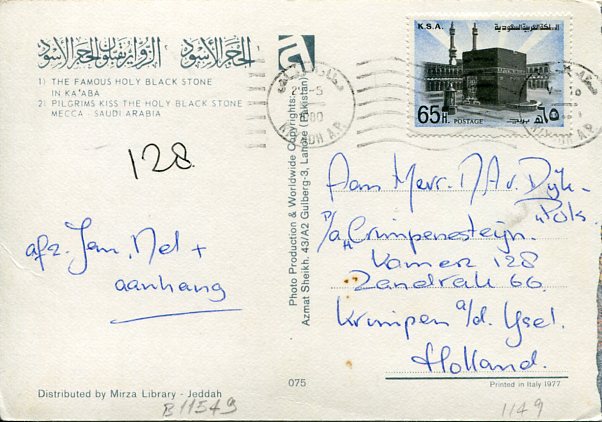 الحجر الأسود الزوار يقبلون الحجر الأسود
1) THE FAMOUS HOLY BLACK STONE
IN KA'ABA
2) PILGRIMS KISS THE HOLY BLACK STONE
MECCA - SAUDI ARABIA
128
afz. Jan, Nel +
aanhang
Distributed by Mirza Library - Jeddah
B11549
Photo Production & Worldwide Copyrights:
Azmat Sheikh. 43/A2 Gulberg-3, Lahore (Pakistan)
075
K.S.A. المملكة العربية السعودية
65H. POSTAGE بريد ٦٥ هـ
1980
Aan Mevr. D A v. Dyk-
"Pols.
P/a "Crimpenersteijn.
Kamer 128
Zandrak 66
Krimpen a/d. Ysel.
Holland.
Printed in Italy 1977
1149